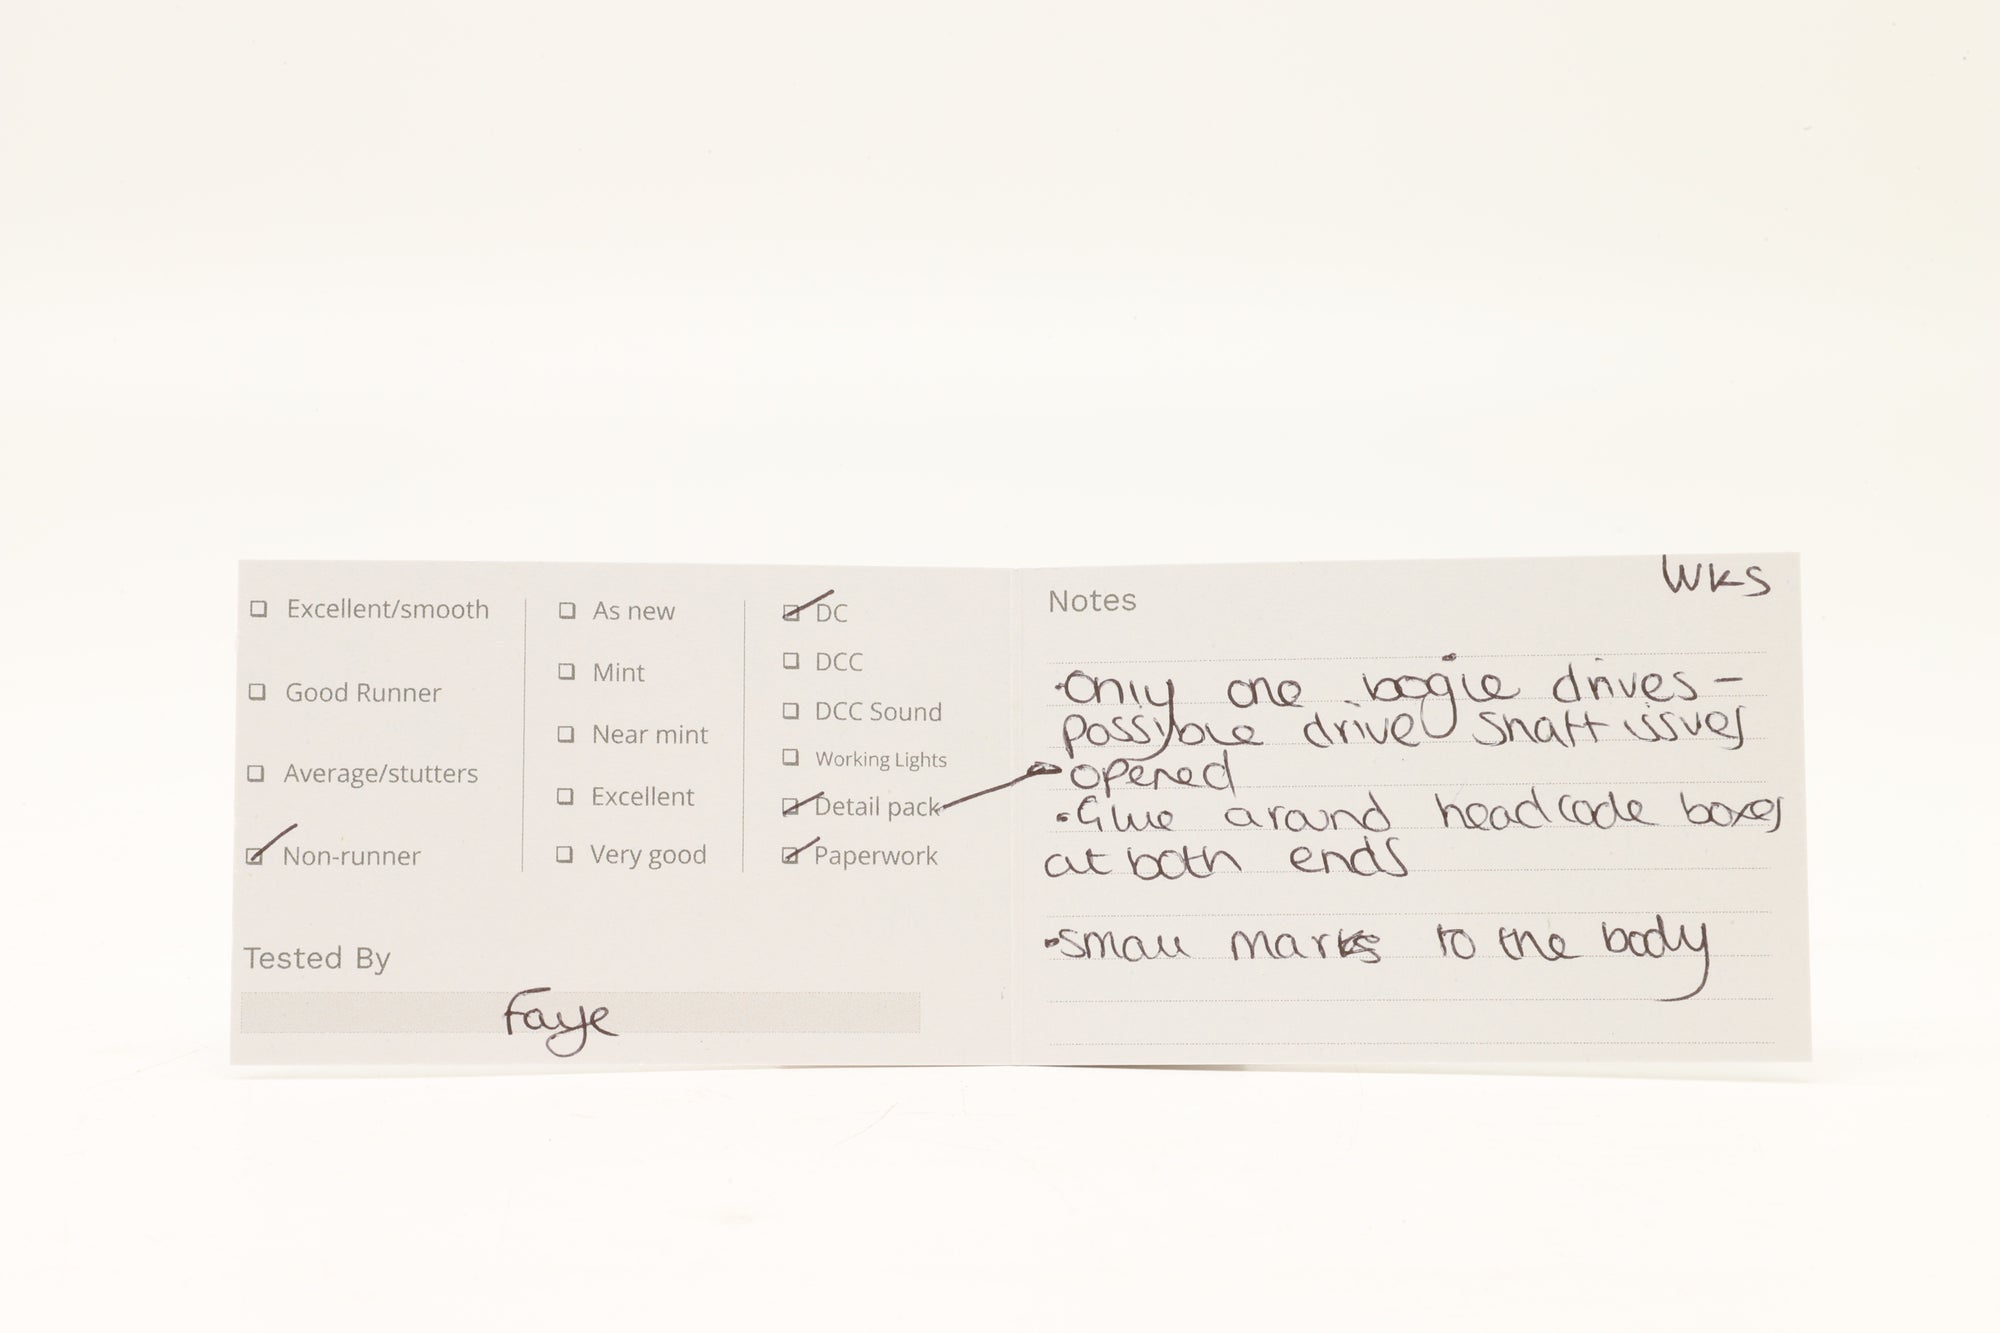 Excellent/smooth
Good Runner
Average/stutters
Non-runner
As new
Mint
Near mint
Excellent
Very good
DC
DCC
DCC Sound
Working Lights
Detail pack
Paperwork
Tested By
Faye
WKS
Notes
·Only one bogie drives -
possible drive shaft issues
opened
·Glue around headcode boxes
at both ends
·small marks to the body